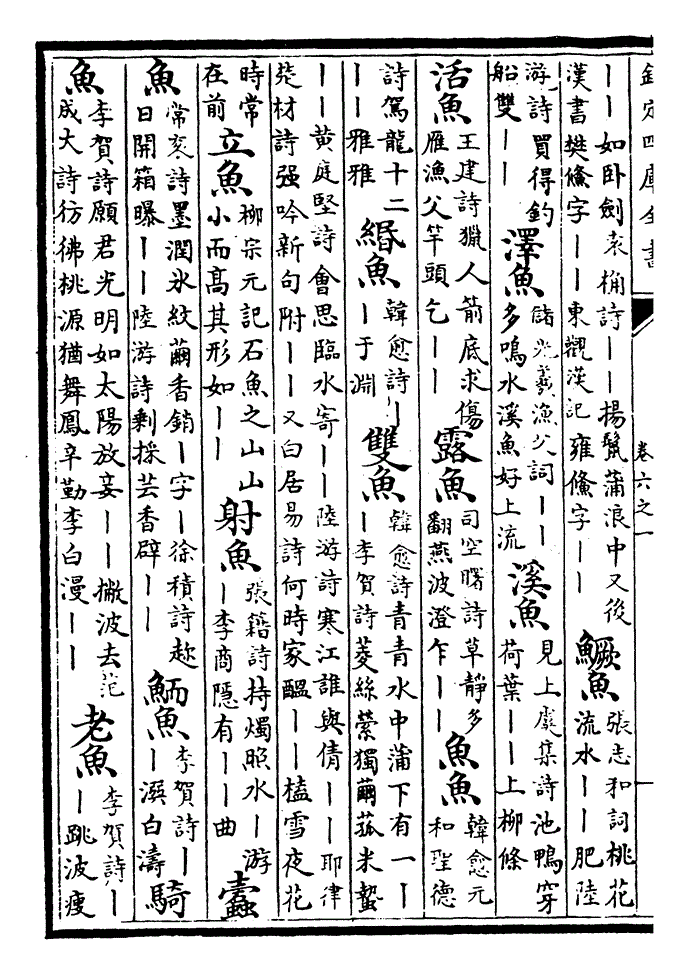 欽定四庫全書　卷六之一
｜｜如卧劍袁桷詩｜｜揚鬣蒲浪中又後
漢書樊鯈字｜｜東觀漢記雍鯈字｜｜
鱖魚
張志和詞桃花
流水｜｜肥陸
游詩買得釣
船雙｜｜
澤魚
儲光羲漁父詞｜｜
多鳴水溪魚好上流
溪魚
見上虞集詩池鴨穿
荷葉｜｜上柳條
活魚
王建詩獵人箭底求傷
雁漁父竿頭乞｜｜
露魚
司空曙詩草靜多
翻燕波澄乍｜｜
魚魚
韓愈元
和聖德
詩駕龍十二
｜｜雅雅
緡魚
韓愈詩｜
｜于淵
雙魚
韓愈詩青青水中蒲下有一｜
｜李賀詩菱絲縈獨繭菰米蟄
｜｜黄庭堅詩會思臨水寄｜｜陸游詩寒江誰與倩｜｜耶律
楚材詩强吟新句附｜｜又白居易詩何時家醖｜｜榼雪夜花
時常
在前
立魚
柳宗元記石魚之山山
小而高其形如｜｜
射魚
張籍詩持燭照水｜游
｜李商隱有｜｜曲
蠹
魚
常衮詩墨潤氷紋繭香銷｜字｜徐積詩趂
日開箱曝｜｜陸游詩剩採芸香辟｜｜
鮞魚
李賀詩｜
｜白濤
騎
魚
李賀詩願君光明如太陽放妾｜｜撇波去范
成大詩彷彿桃源猶舞鳳辛勤李白漫｜｜
老魚
李賀詩｜
｜跳波瘦